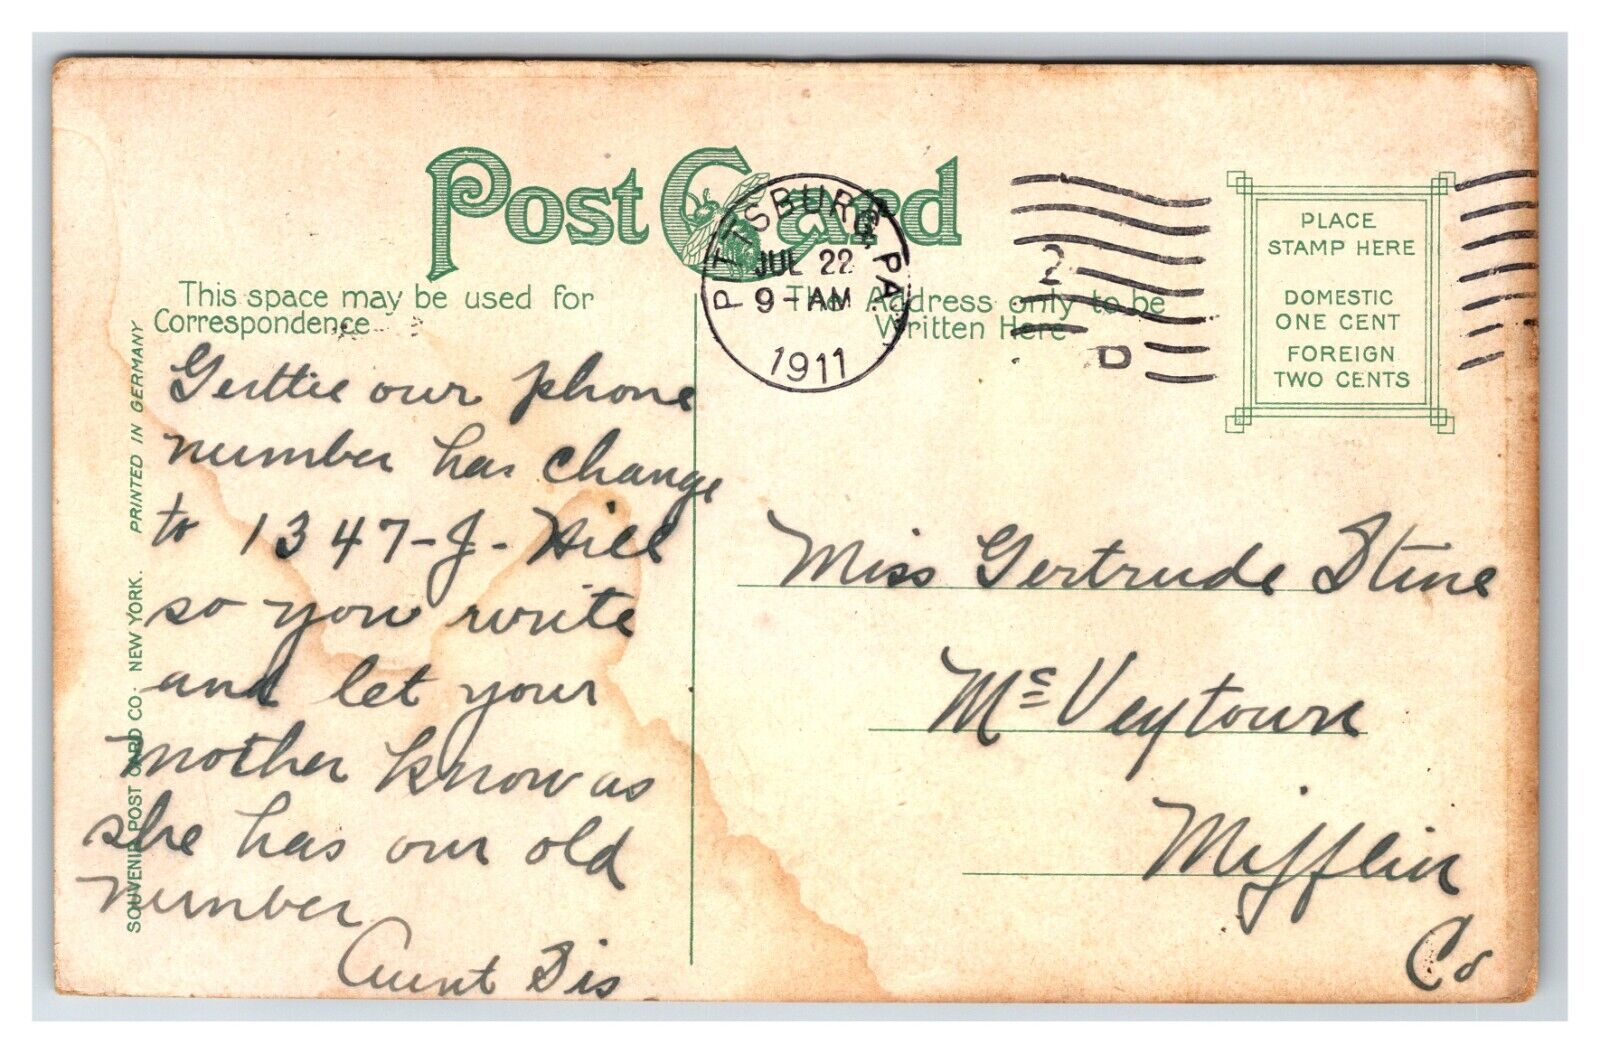 Post Card
PITTSBURG, PA.
JUL 22
9-AM
1911
2
D
PLACE
STAMP HERE
DOMESTIC
ONE CENT
FOREIGN
TWO CENTS
This space may be used for
Correspondence
The Address only to be
Written Here
SOUVENIR POST CARD CO. NEW YORK. PRINTED IN GERMANY
Gerttie our phone
number has change
to 1347-J-Hill
so you write
and let your
mother know as
she has our old
number
Aunt Sis
Miss Gertrude Stine
Mc Veytown
Mifflin
Co